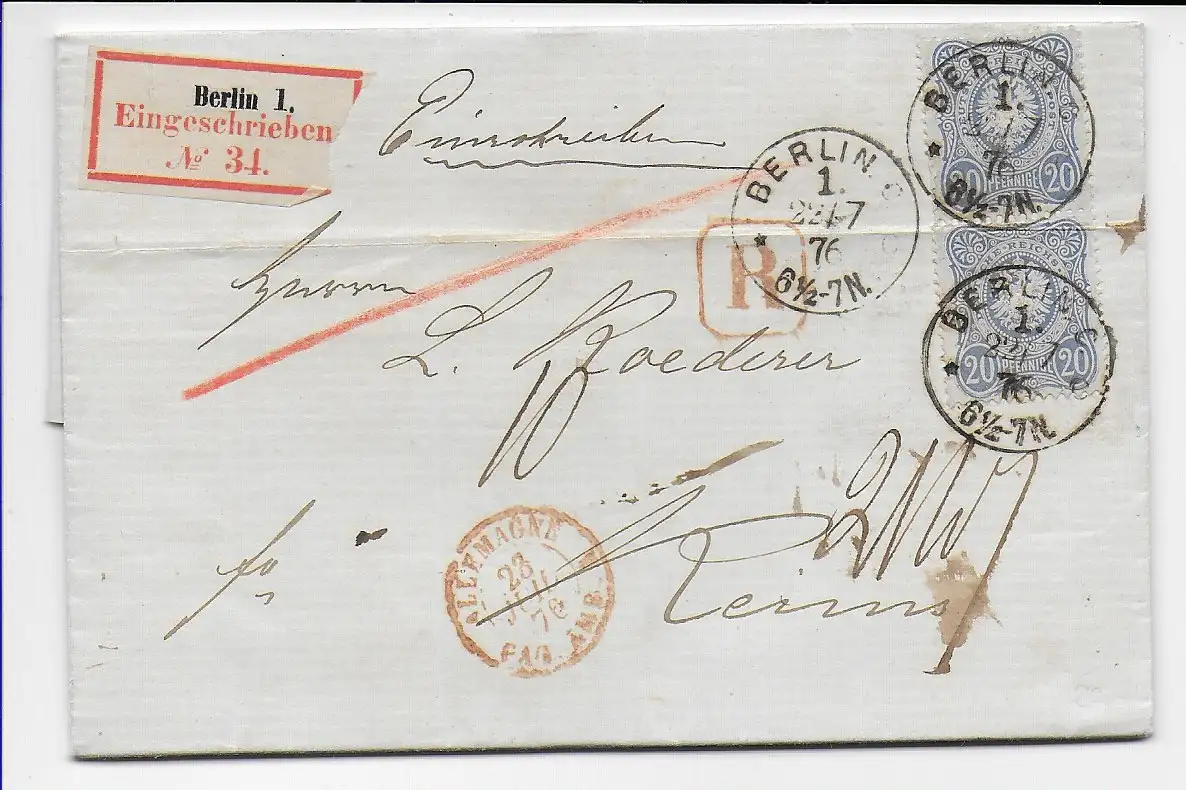 Berlin 1.
Eingeschrieben
№ 34.
Einschreiben
BERLIN. C
1.
22/7
76
6½-7N.
20 PFENNIGE 20
BERLIN. C
1.
22/7
76
6½-7N.
R
REICHS
20 PFENNIGE 20
BERLIN. C
1.
22/7
76
6½-7N.
Herrn
L. Roederer
fo
Reims
ALLEMAGNE
23
JUIL
76
PAG. AMB.